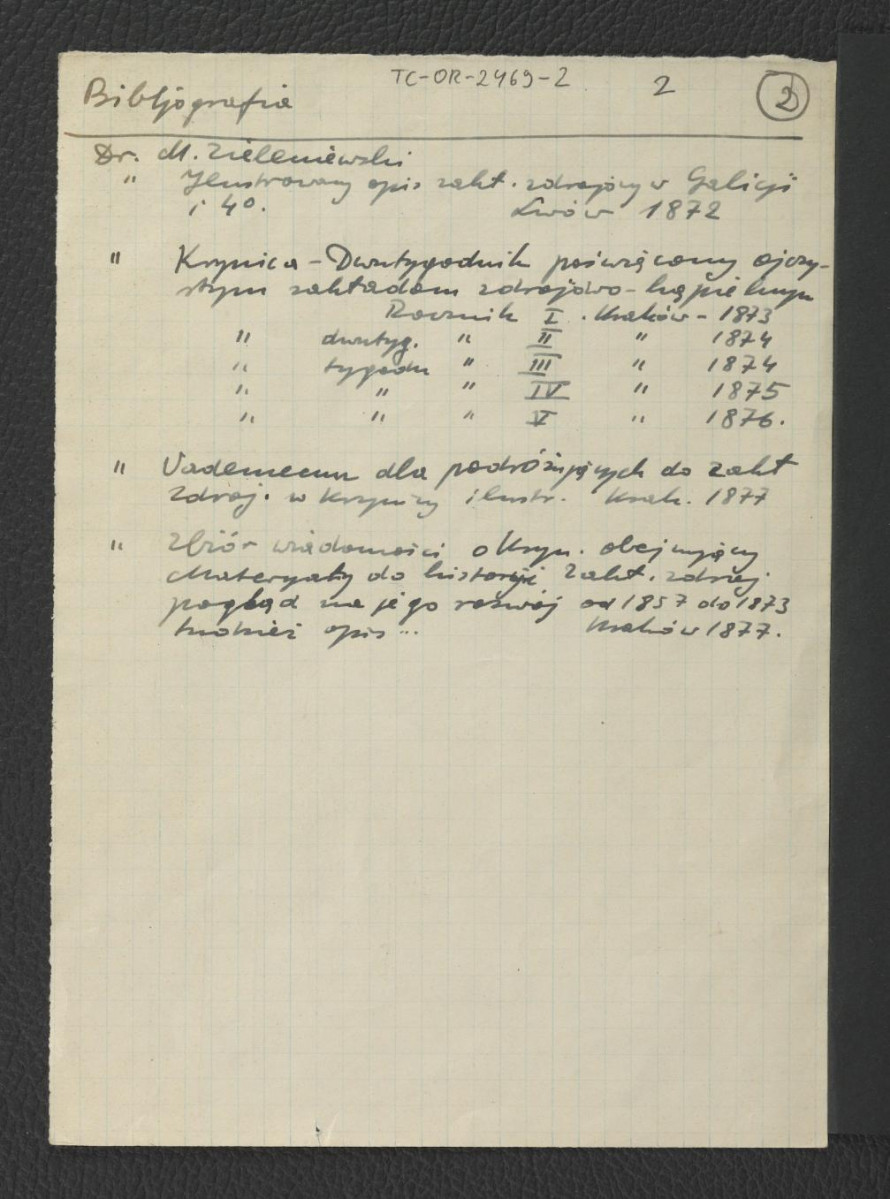 TC-OR-2469-2
2
2
Bibljografia
Dr. M. Zieleniewski
" Ilustrowany opis zakł. zdrojowy w Galicji
i 4º. Lwów 1872
" Krynica - Dwutygodnik poświęcony ojczy-
stym zakładom zdrojowo-kąpielnym
Rocznik I. Kraków - 1873
" dwutyg. " II " 1874
" tygodn " III " 1874
" " " IV " 1875
" " " V " 1876.
" Vademecum dla podróżujących do zakł
zdroj. w Krynicy ilustr. Krak. 1877
" Zbiór wiadomości o Kryn. obejmujący
Materyały do historyi zakł. zdroj
pogląd na jego rozwój od 1857 do 1873
tudzież opis... Kraków 1877.